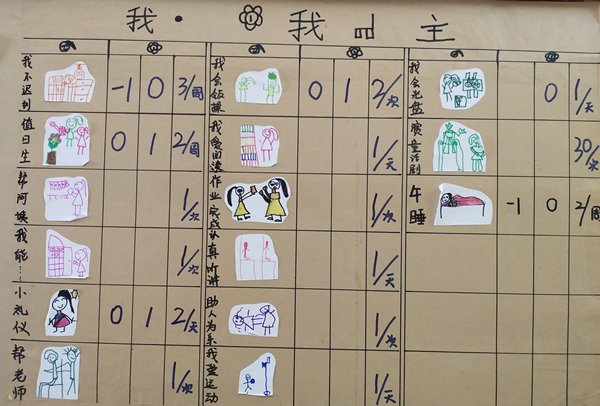 我 · 我 主
我不迟到 -1 0 3/周
值日生 0 1 2/周
帮阿姨 1/次
我能… 1/次
小礼仪 0 1 2/天
帮老师 1/次
我会 操 0 1 2/次
我爱阅读 1/天
作业完成 1/次
认真听讲 1/天
助人为乐 1/次
我爱运动 1/天
我会光盘 0 1/天
质量话剧 30/次
午睡 -1 0 2/周